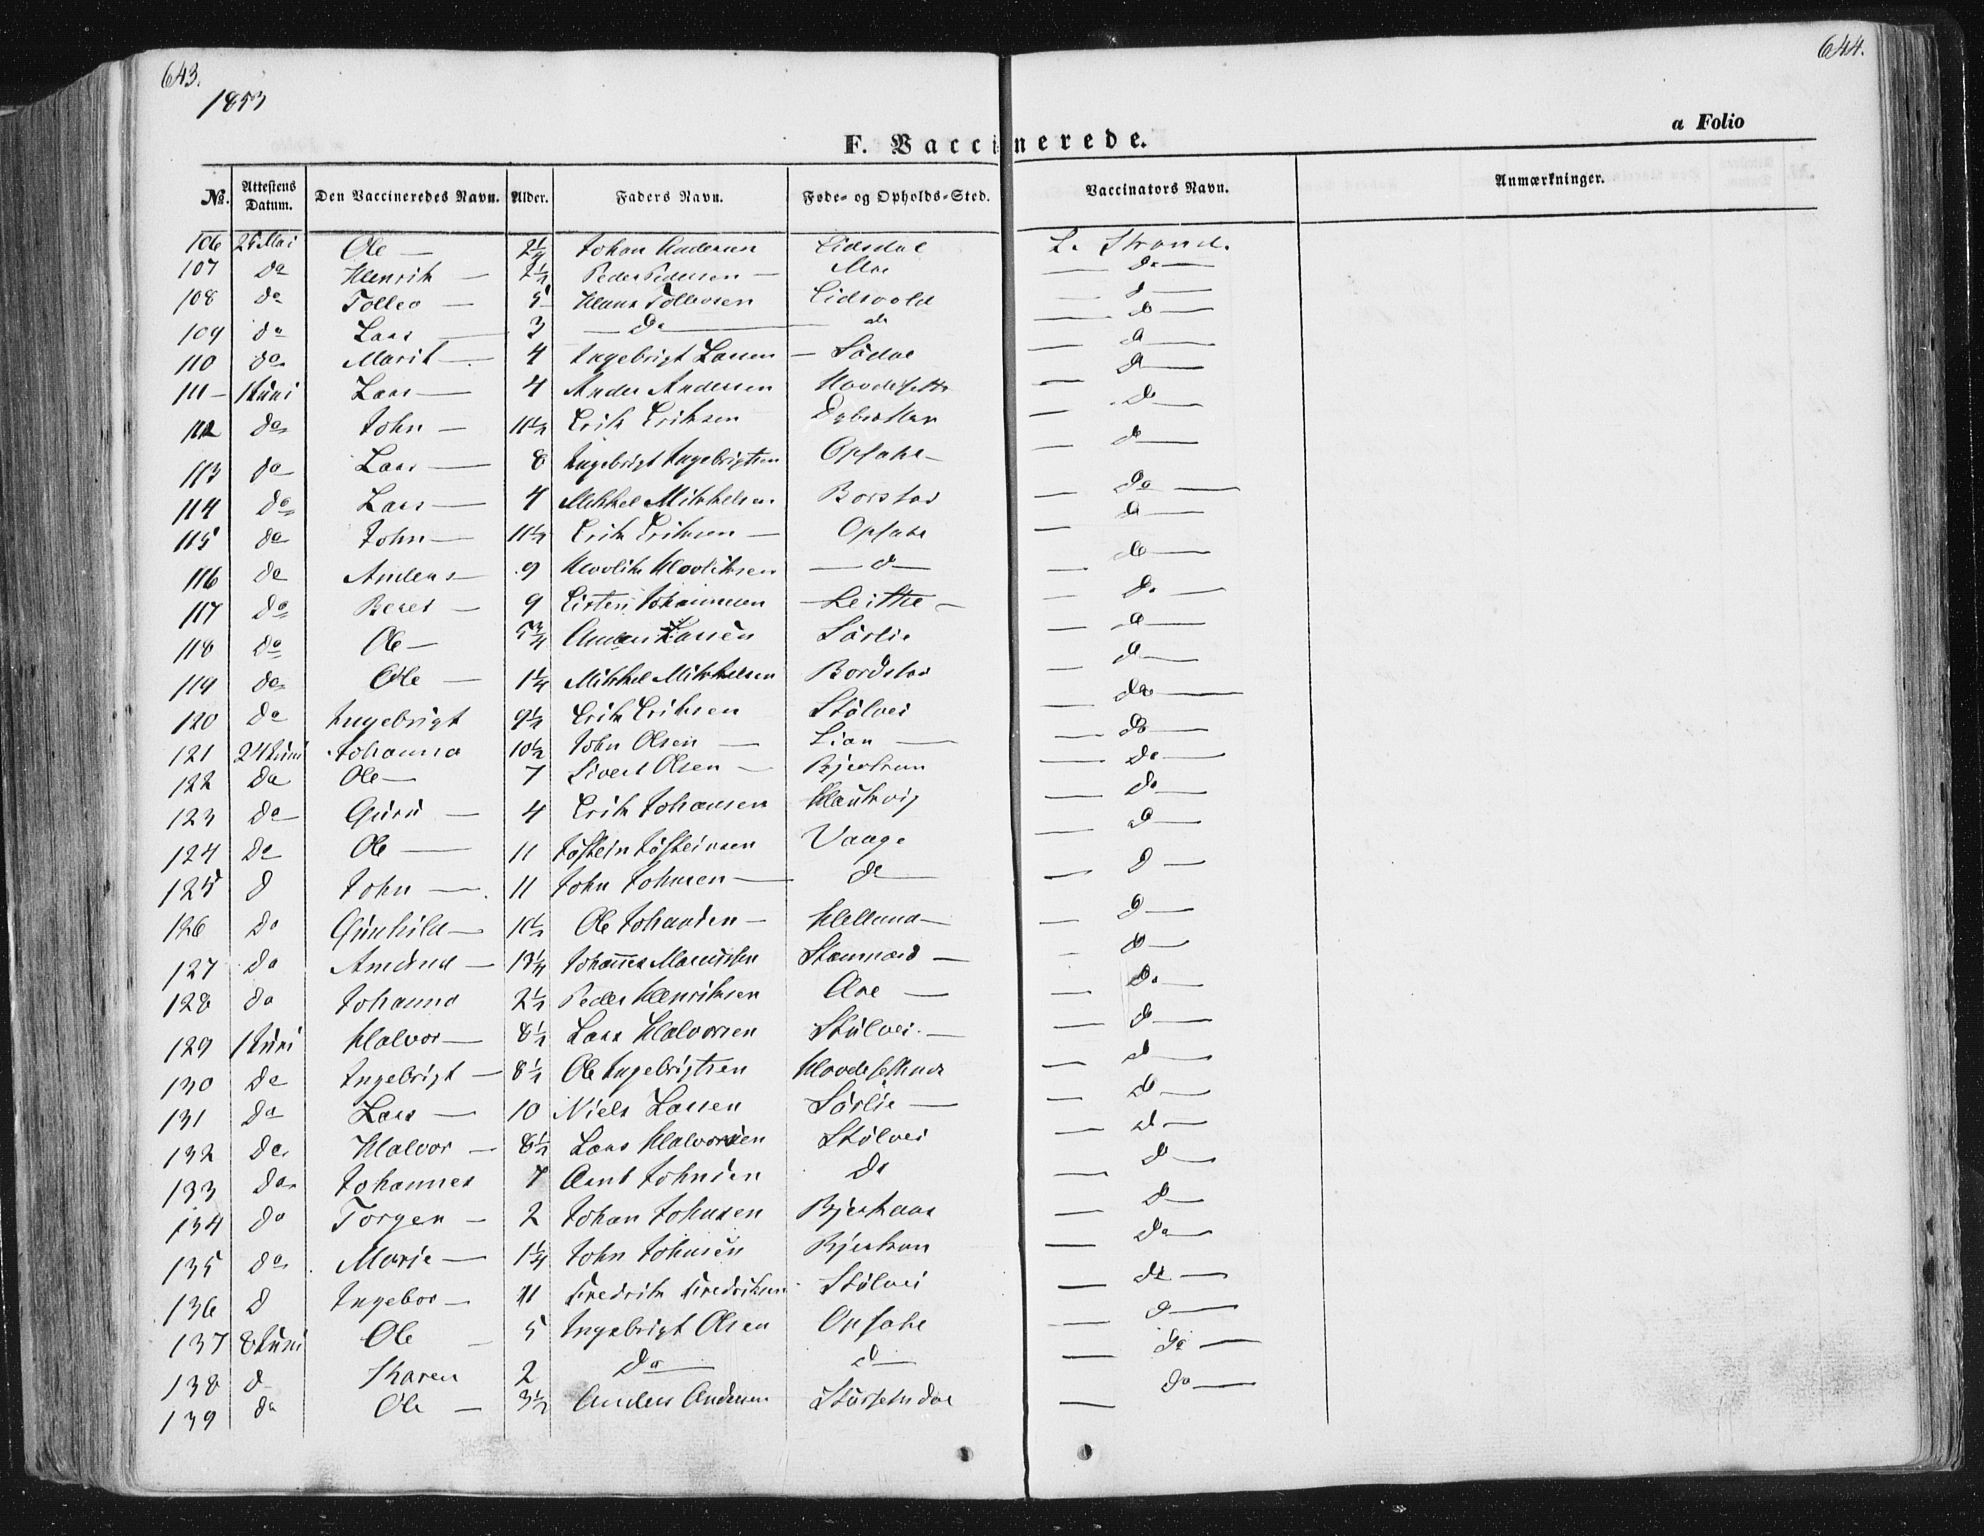 643.
644.
1853
a Folio
F. Vaccinerede.
No. Attestens Datum. Den Vaccineredes Navn. Alder. Faders Navn. Føde- og Opholds-Sted. Vaccinators Navn. Anmærkninger.
106 Mai Ole — 2 1/4 Johan Andersen L. Strand.
107 do Henrik — 2 1/2 Peder Pedersen — Moe — do —
108 do Tollev — 5 Hans Tollevsen Eidsvold — d —
109 do Lars — 3 — do — do — do —
110 do Marit — 4 Ingebrigt Larsen — — d —
111 — 1 Juni Lars — 4 Anders Andersen — d —
112 do John — 11 1/2 Erik Eriksen — do
113 do Lars — 8 Ingebrigt Ingebrigtsen Opsahl — — d —
114 do Lars — 4 Mikkel Mikkelsen Borstad — do —
115 do John — 11 1/2 Erik Eriksen — Opsahl — d —
116 do Anders — 9 — d — — do —
117 do — 9 Johannesen — Leithe — — do —
118 do Ole — 5 3/4 Anders Larsen Sørlie — d —
119 do Ole — 1 1/4 Mikkel Mikkelsen Bordstad — d —
120 do Ingebrigt 9 1/2 Erik Eriksen Stølvei — do —
121 24 Juni Johanna 10 1/2 John Olsen — Lian — — do —
122 do Ole — 7 Sivert Olsen — — do —
123 do Guru — 4 Erik Johansen Haukvig — do —
124 do Ole — 11 Vaage — d —
125 d John — 11 John Johnsen — do — — d —
126 do Gunhild — 10 1/2 Ole Johansen — Helland — — d —
127 do Amund — 13 1/4 Johannes — — do —
128 do Johanna 2 1/2 Peder Henriksen Aae — — do —
129 1 Juni Halvor — 8 1/2 Lars Halvorsen Stølvei — — do —
130 do Ingebrigt — 8 1/2 Ole Ingebrigtsen — do —
131 do Lars — 10 Niels Larsen Sørlie — — do —
132 do Halvor — 8 1/2 Lars Halvorsen Stølvei — d —
133 do Johannes 7 Arnt Johnsen do — d —
134 do Torger — 2 Johan Johnsen — d —
135 do Marie — 1 1/4 John Johnsen — do —
136 d Ingebor — 11 Fredrik Fredriksen Stølvei — do —
137 8 Juni Ole — 5 Ingebrigt Olsen Opsahl — d —
138 d Karen 2 do — d — — do —
139 do Ole — 3 1/2 Anders Andersen — do —